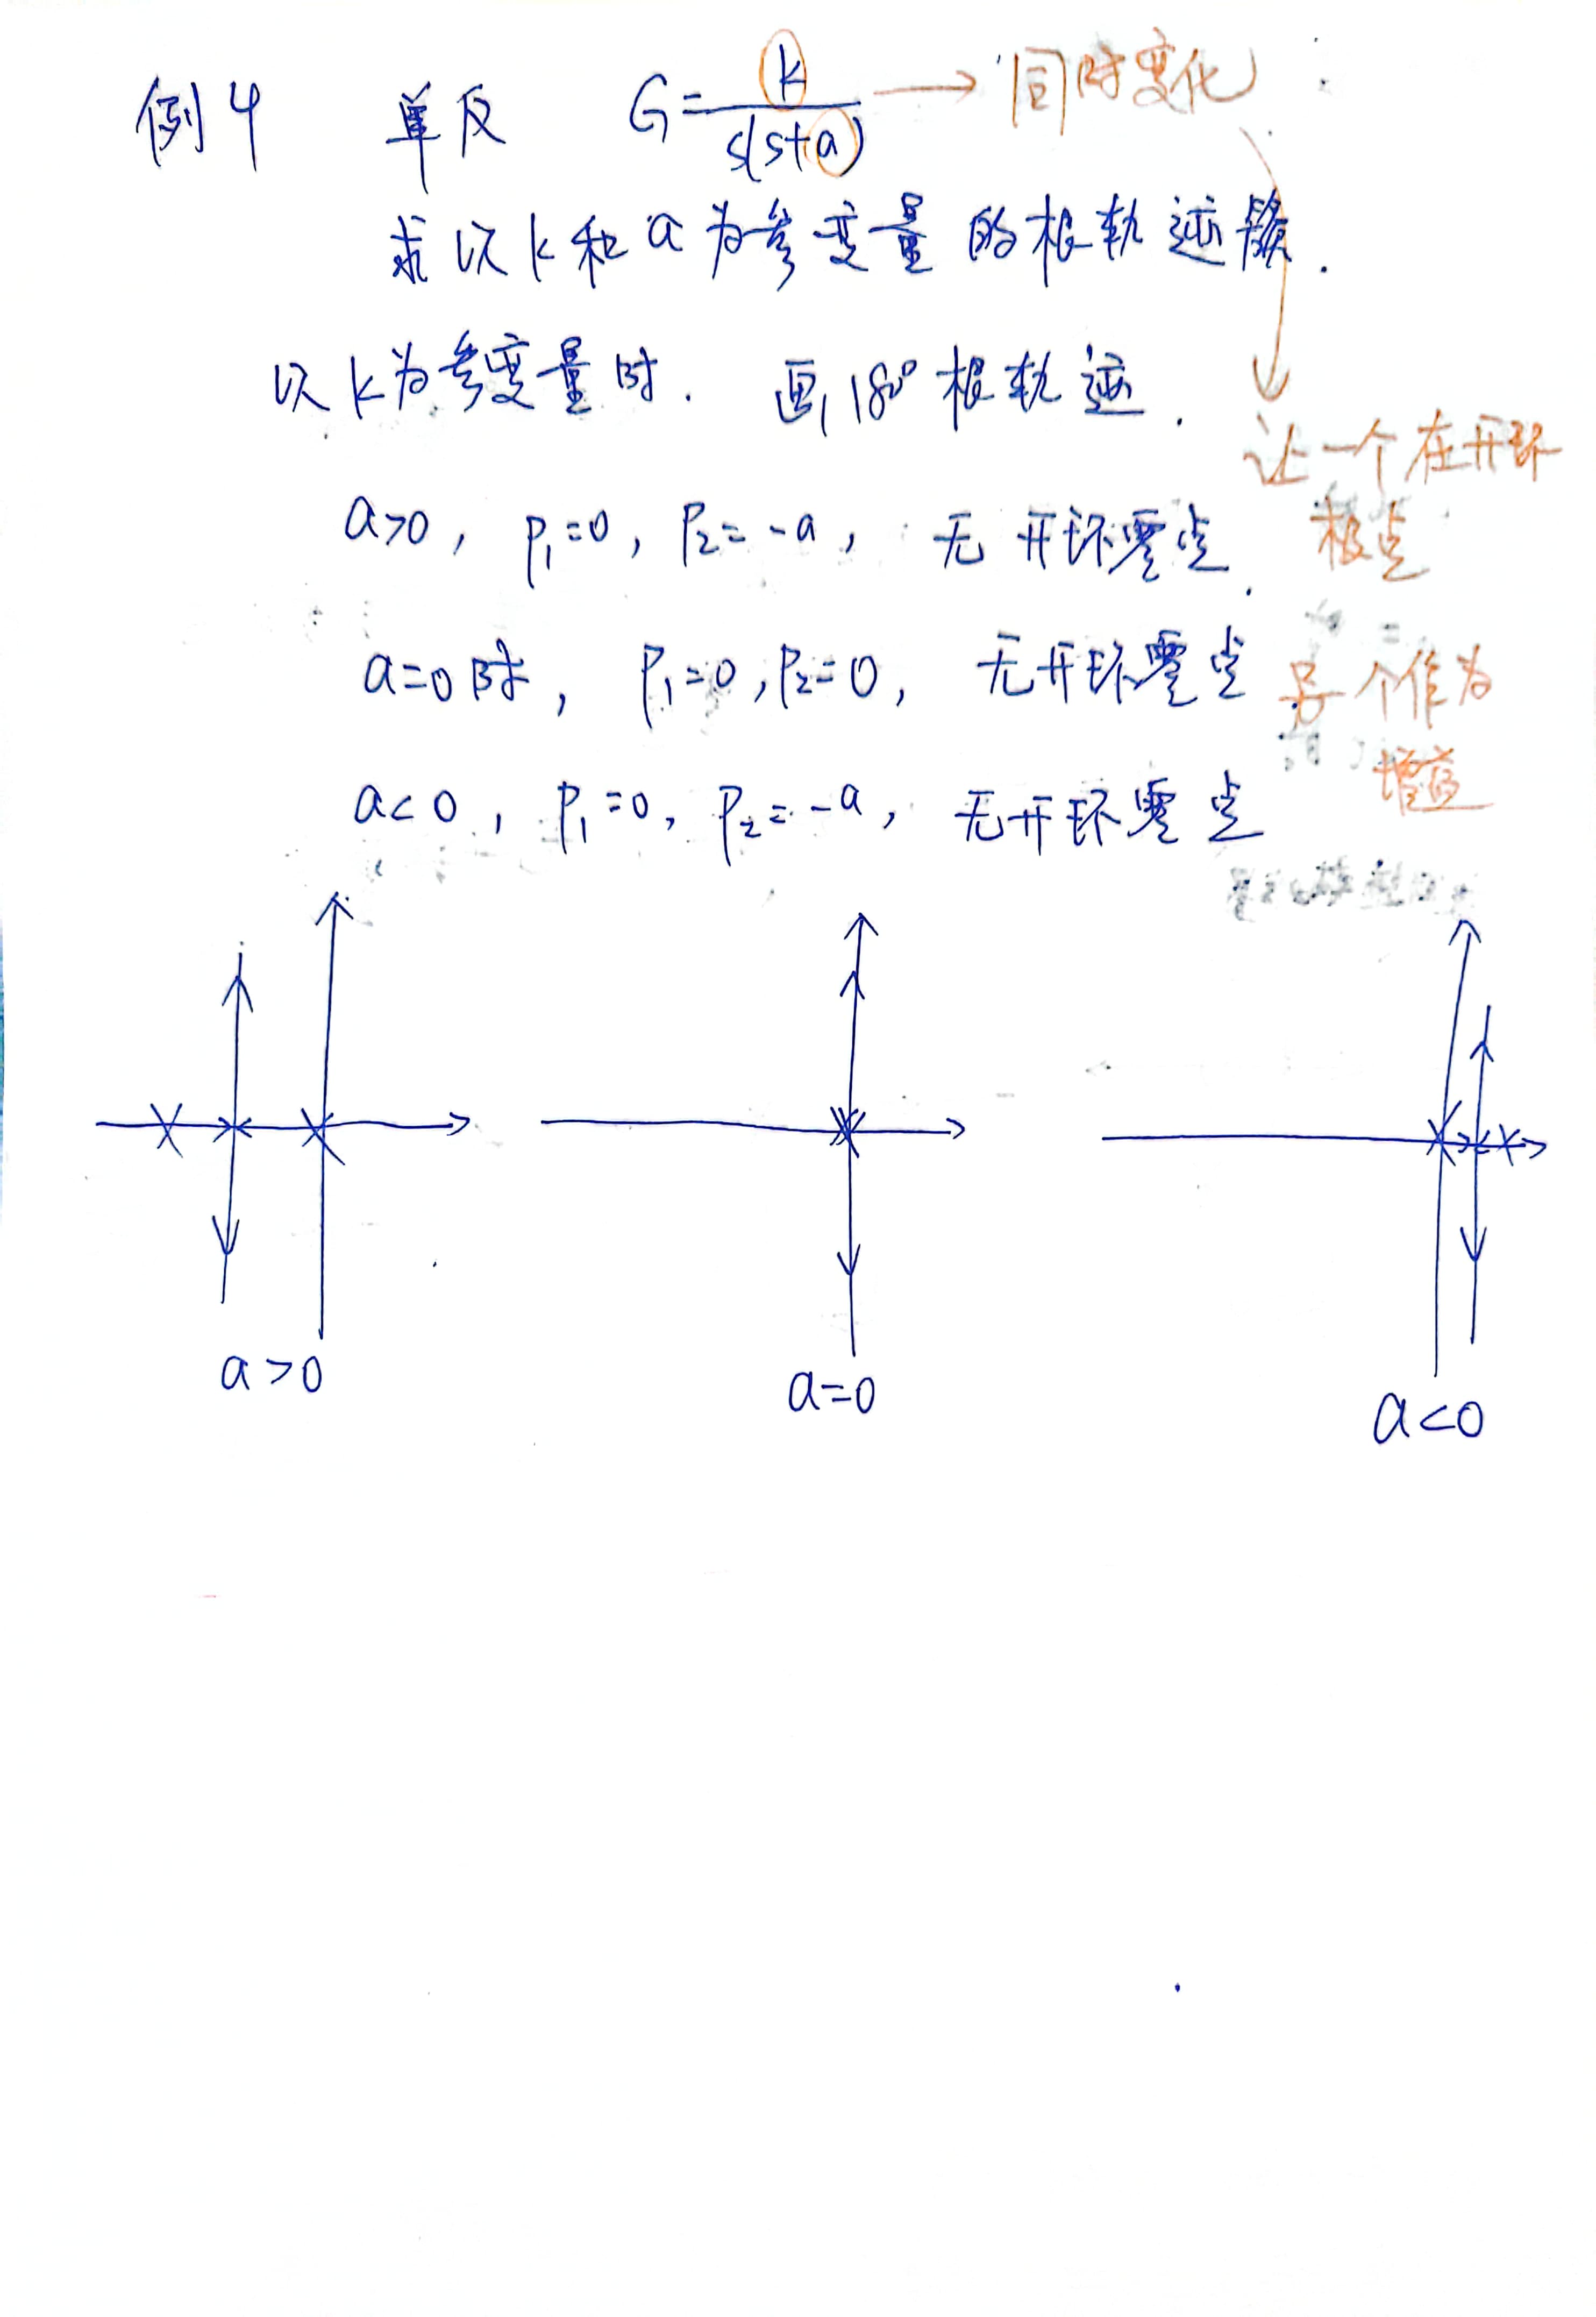 例4 单反 G=k/s(s+a) → 同时变化
求以k和a为参变量的根轨迹簇.
以k为参变量时. 画180°根轨迹.
让一个在开环
极点
另个作为
增益
a>0, p₁=0, p₂=-a, 无开环零点.
a=0时, p₁=0, p₂=0, 无开环零点
a<0, p₁=0, p₂=-a, 无开环零点
a>0
a=0
a<0